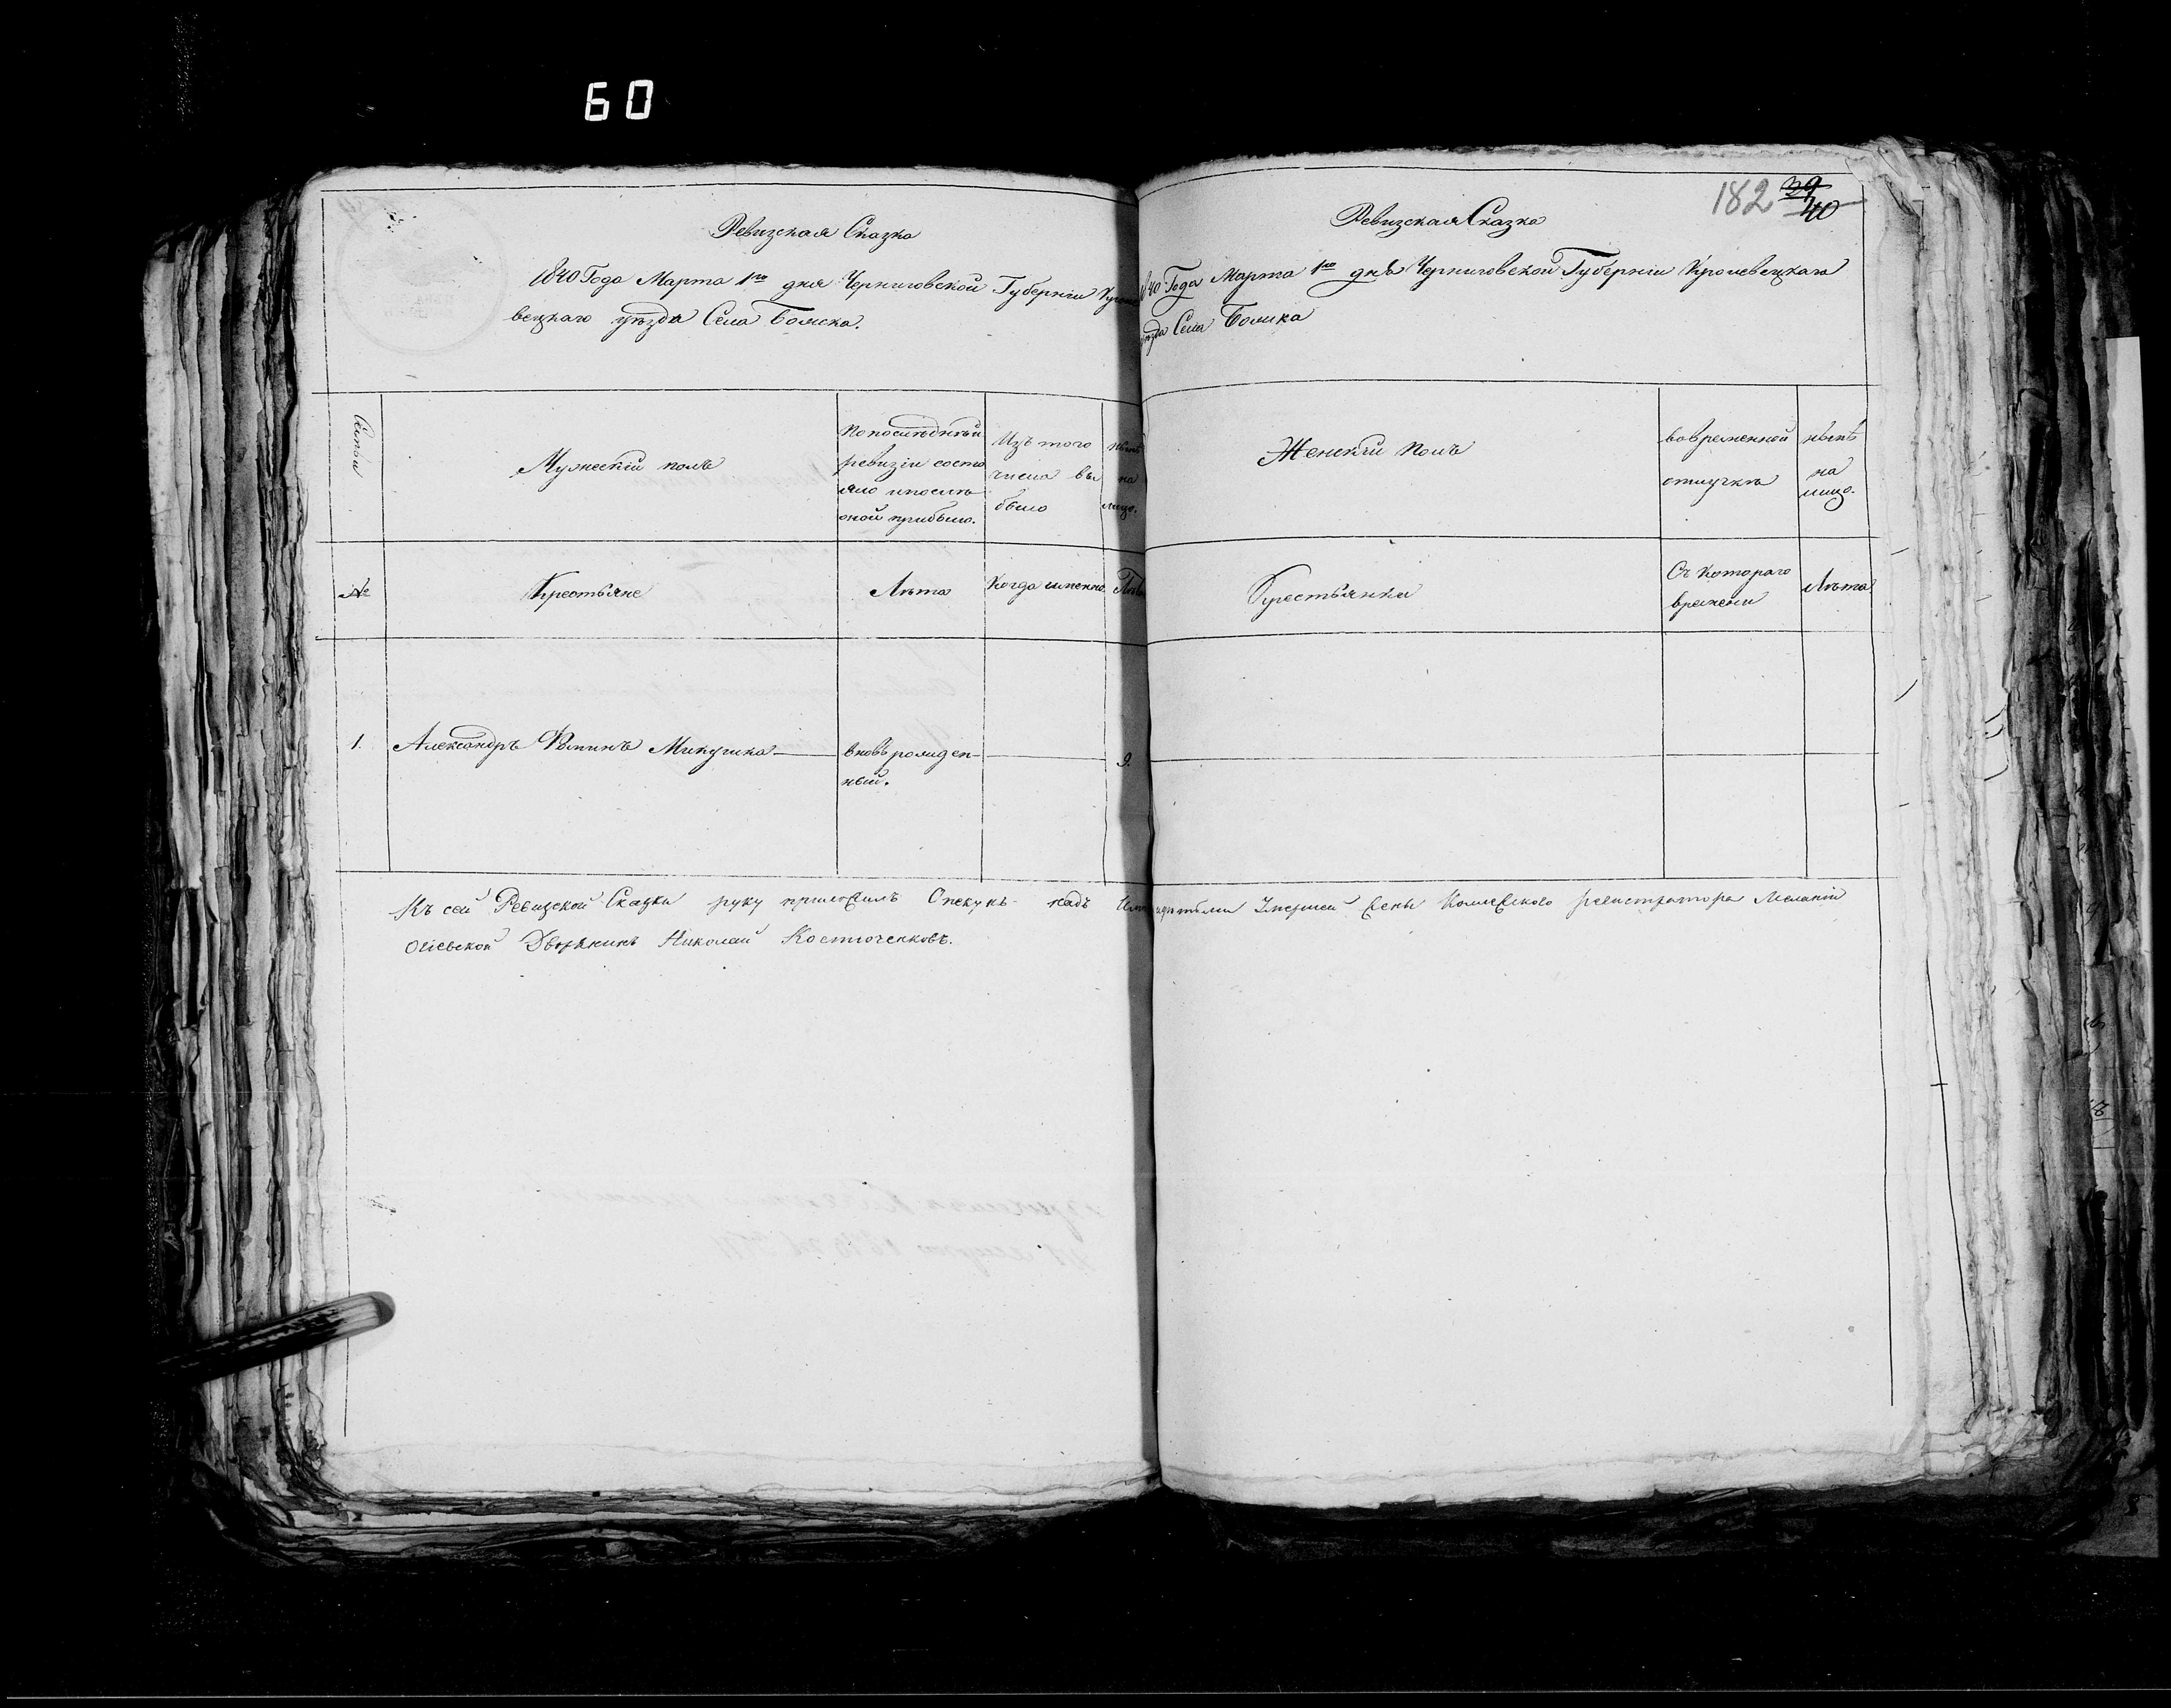 60
182 39
40
Ревизская Сказка
1840 Года Марта 1го дня Черниговской Губерніи Кроле
вецкаго уѣзда Села
Семьи
Мужескій полъ
По послѣдней
ревизіи состо
яло и послѣ
оной прибыло.
Изъ того
числа вы
было
нынѣ
на
лицо.
№
Крестьяне
Лѣта
Когда именно
Лѣта
1.
Александръ Фоминъ Микучика
вновь рожден-
ный.
9.
Ревизская Сказка
1840 Года Марта 1го дня Черниговской Губерніи Кролевецкаго
уѣзда Села
Женскій полъ
во временной
отлучкѣ
нынѣ
на
лицо.
Крестьянки
Съ котораго
времени
Лѣта
Къ сей Ревизской Сказки руку приложилъ Опекунъ надъ умершей жены Колежского регистратора Меланіи
Огіевской Дворянинъ Николай Костюченковъ.